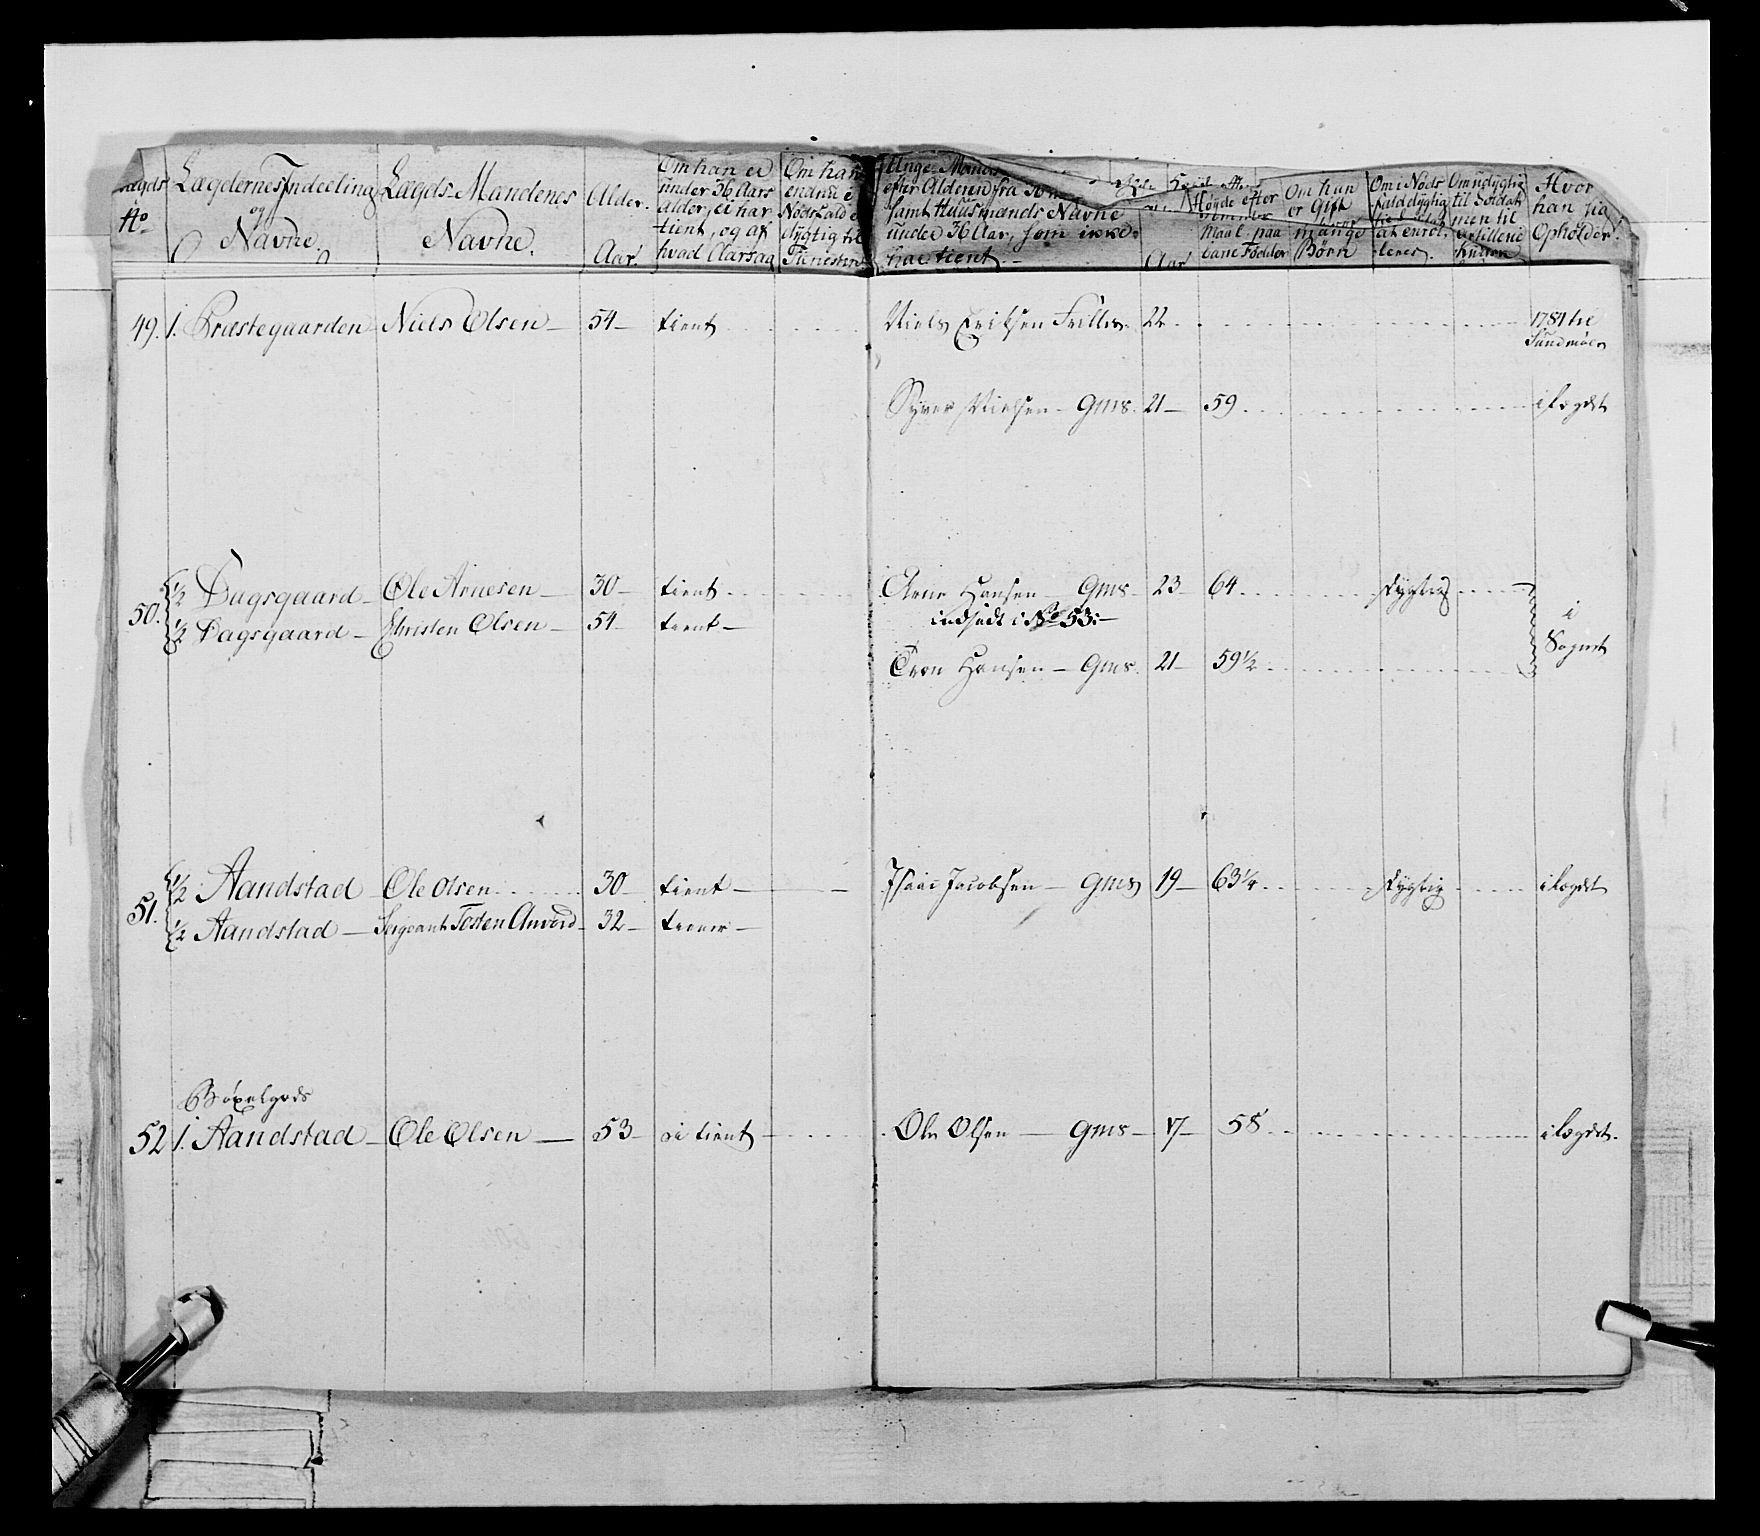 Lægds No
Lægdernes Indeeling og Navne.
Lægds-Mændenes Navne.
Alder. Aar.
Om han er under 36 Aars alder, ei har tient, og af hvad Aarsag
Om han endnu i Nødsfald er dygtig til Tienesten
efter Alderen fra
samt Huusmænds Navne
under 36 Aar, som ikke
har tient.
Aar
Høyde efter
Maal paa bare Fødder
Om han er Gift
mange Børn
Om i Nøds fald dygtig
at enrol- leres.
Om udygtig til Soldat men til Artillerie
Hvor han sig Opholder.
49. 1. Præstegaarden Niels Olsen 54 tient Niels Eriksen 22 1784 til Sundmøer
Syver Nielsen Gms. 21 59 i Lægdet
50. ½ Dagsgaard Ole Arnesen 30 tient Arne Hansen Gms. 23 64 dygtig
½ Dagsgaard Christen Olsen 54 tient indsadt i No 53:
i Sognet
Hansen Gms. 21 59½
51. ½ Aandstad Ole Olsen 30 tient Isaac Jacobsen Gms 19 63¼ dygtig i Lægdet
½ Aandstad Sergeant Tosten Amord 32 tiener
Bøxelgods
52 1. Aandstad Ole Olsen 53 ei tient Ole Olsen Gms 17 58 i Lægdet.